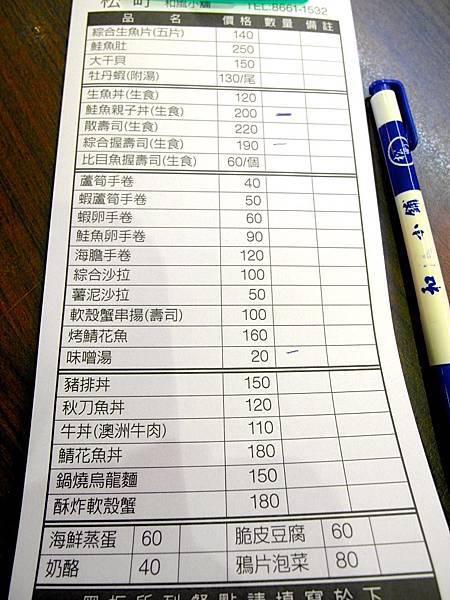 松町 和風小舖 TEL:8661-1532
品名 價格 數量 備註
綜合生魚片(五片) 140
鮭魚肚 250
大干貝 150
牡丹蝦(附湯) 130/尾
生魚丼(生食) 120
鮭魚親子丼(生食) 200
散壽司(生食) 220
綜合握壽司(生食) 190
比目魚握壽司(生食) 60/個
蘆筍手卷 40
蝦蘆筍手卷 50
蝦卵手卷 60
鮭魚卵手卷 90
海膽手卷 120
綜合沙拉 100
薯泥沙拉 50
軟殼蟹串揚(壽司) 100
烤鯖花魚 160
味噌湯 20
豬排丼 150
秋刀魚丼 120
牛丼(澳洲牛肉) 110
鯖花魚丼 180
鍋燒烏龍麵 150
酥炸軟殼蟹 180
海鮮蒸蛋 60 脆皮豆腐 60
奶酪 40 鴉片泡菜 80
黑板所列餐點請填寫於下
和風小舖